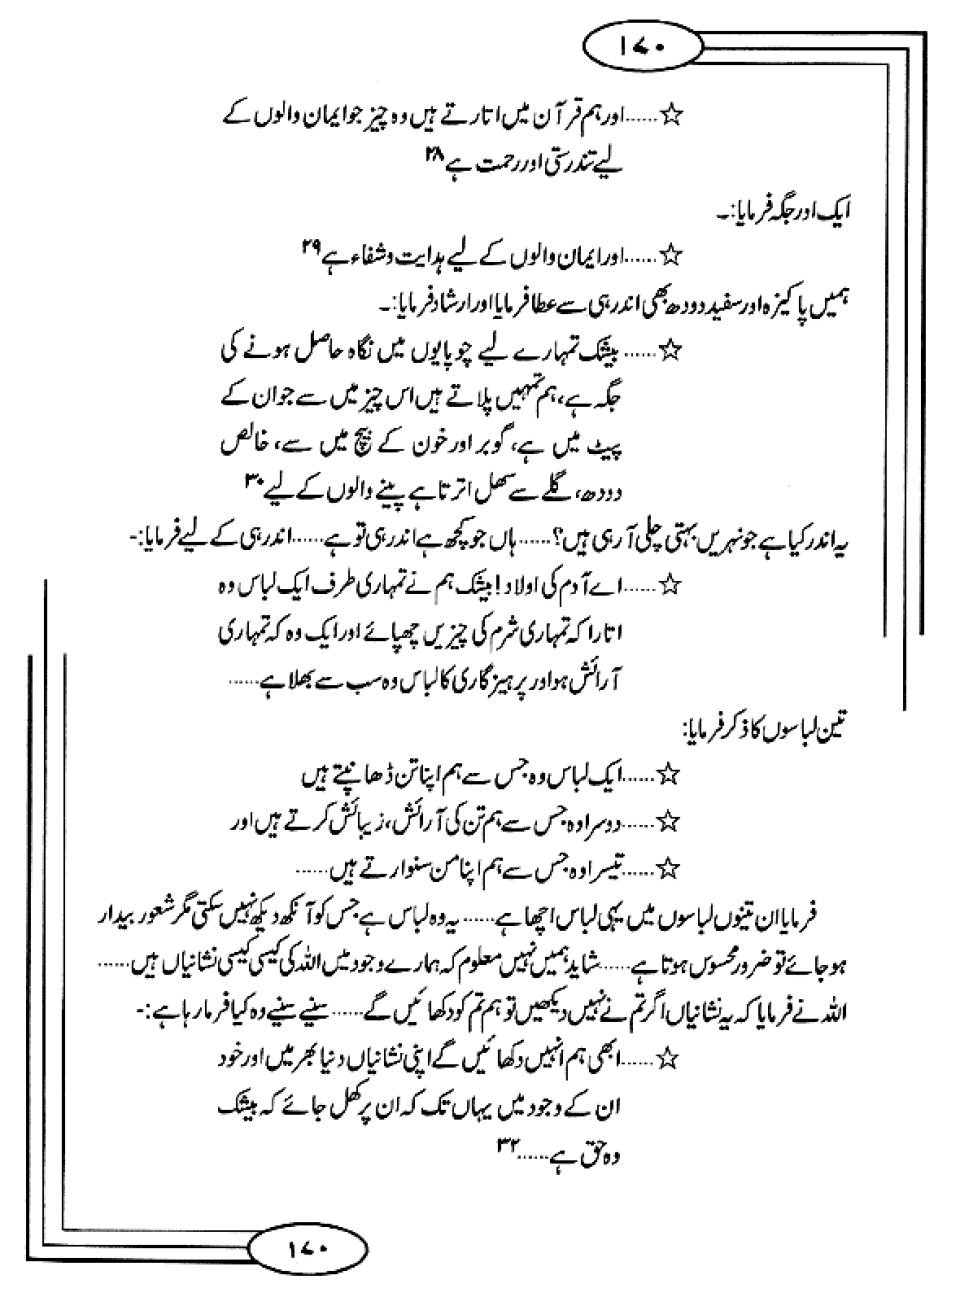 ۱۷۰
☆......اور ہم قرآن میں اتارتے ہیں وہ چیز جو ایمان والوں کے
لیے تندرستی اور رحمت ہے ۲۸
ایک اور جگہ فرمایا:۔
☆......اور ایمان والوں کے لیے ہدایت و شفاء ہے ۲۹
ہمیں پاکیزہ اور سفید دودھ بھی اندر ہی سے عطا فرمایا اور ارشاد فرمایا:۔
☆...... بیشک تمہارے لیے چوپایوں میں نگاہ حاصل ہونے کی
جگہ ہے، ہم تمہیں پلاتے ہیں اس چیز میں سے جو ان کے
پیٹ میں ہے، گوبر اور خون کے بیچ میں سے، خالص
دودھ، گلے سے سھل اترتا ہے پینے والوں کے لیے ۳۰
یہ اندر کیا ہے جو نہریں بہتی چلی آ رہی ہیں؟...... ہاں جو کچھ ہے اندر ہی تو ہے......اندر ہی کے لیے فرمایا:-
☆......اے آدم کی اولاد! بیشک ہم نے تمہاری طرف ایک لباس وہ
اتارا کہ تمہاری شرم کی چیزیں چھپائے اور ایک وہ کہ تمہاری
آرائش ہو اور پرہیزگاری کا لباس وہ سب سے بھلا ہے......
تین لباسوں کا ذکر فرمایا:
☆......ایک لباس وہ جس سے ہم اپنا تن ڈھانپتے ہیں
☆......دوسرا وہ جس سے ہم تن کی آرائش، زیبائش کرتے ہیں اور
☆......تیسرا وہ جس سے ہم اپنا من سنوارتے ہیں......
فرمایا ان تینوں لباسوں میں یہی لباس اچھا ہے...... یہ وہ لباس ہے جس کو آنکھ دیکھ نہیں سکتی مگر شعور بیدار
ہو جائے تو ضرور محسوس ہوتا ہے..... شاید ہمیں نہیں معلوم کہ ہمارے وجود میں اللہ کی کیسی کیسی نشانیاں ہیں......
اللہ نے فرمایا کہ یہ نشانیاں اگر تم نے نہیں دیکھیں تو ہم تم کو دکھائیں گے...... سنیے سنیے وہ کیا فرما رہا ہے:-
☆......ابھی ہم انہیں دکھائیں گے اپنی نشانیاں دنیا بھر میں اور خود
ان کے وجود میں یہاں تک کہ ان پر کھل جائے کہ بیشک
وہ حق ہے......۳۲
۱۷۰